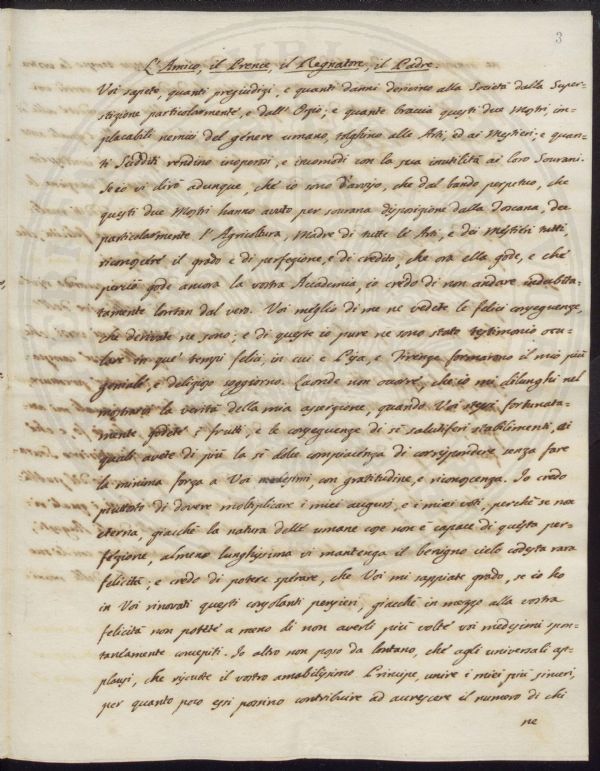 3
L'Amico, il Prence, il Regnatore, il Padre.
Voi sapete, quanti pregiudizj, e quanti danni derivino alla Società dalla Super-
stizione particolarmente, e dall' Ozio; e quante braccia questi due Mostri, im-
placabili nemici del genere umano, tolghino alle Arti, ed ai Mestieri; e quan-
ti Sudditi rendino inoperosi, e incomodi con la sua inutilità ai loro Sovrani.
Se io vi dirò adunque, che io sono d'avviso, che dal bando perpetuo, che
questi due Mostri hanno avuto per sovrana disposizione dalla Toscana, dee
particolarmente l'Agricoltura, Madre di tutte le Arti, e dei Mestieri tutti,
riconoscere il grado e di perfezione, e di credito, che ora ella gode, e che
perciò gode ancora la vostra Accademia, io credo di non andare indubita-
tamente lontan dal vero. Voi meglio di me ne vedete le felici conseguenze,
che derivate ne sono; e di queste io pure ne sono stato testimonio ocu-
lare in que' tempi felici, in cui e Pisa, e Firenze formarono il mio più
geniale, e delizioso soggiorno. Laonde non occorre, che io mi dilunghi nel
mostrarvi la verità della mia asserzione, quando Voi stessi fortunata-
mente godete i frutti, e le conseguenze di sì salutiferi stabilimenti, ai
quali avete di più la sì dolce compiacenza di corrispondere senza fare
la minima forza a Voi medesimi, con gratitudine, e riconoscenza. Io credo
piuttosto di dovere moltiplicare i miei augurj, e i miei voti, perchè se non
eterna, giacchè la natura delle umane cose non è capace di questa per-
fezione, almeno lunghissima vi mantenga il benigno cielo codesta rara
felicità; e credo di potere sperare, che Voi mi sappiate grado, se io ho
in Voi rinovati questi consolanti pensieri, giacchè in mezzo alla vostra
felicità non potete a meno di non averli più volte voi medesimi spon-
taneamente concepiti. Io altro non posso da lontano, che agli universali ap-
plausi, che riscuote il vostro amabilissimo Principe, unire i miei più sinceri,
per quanto poco essi possino contribuire ad accrescere il numero di chi
ne